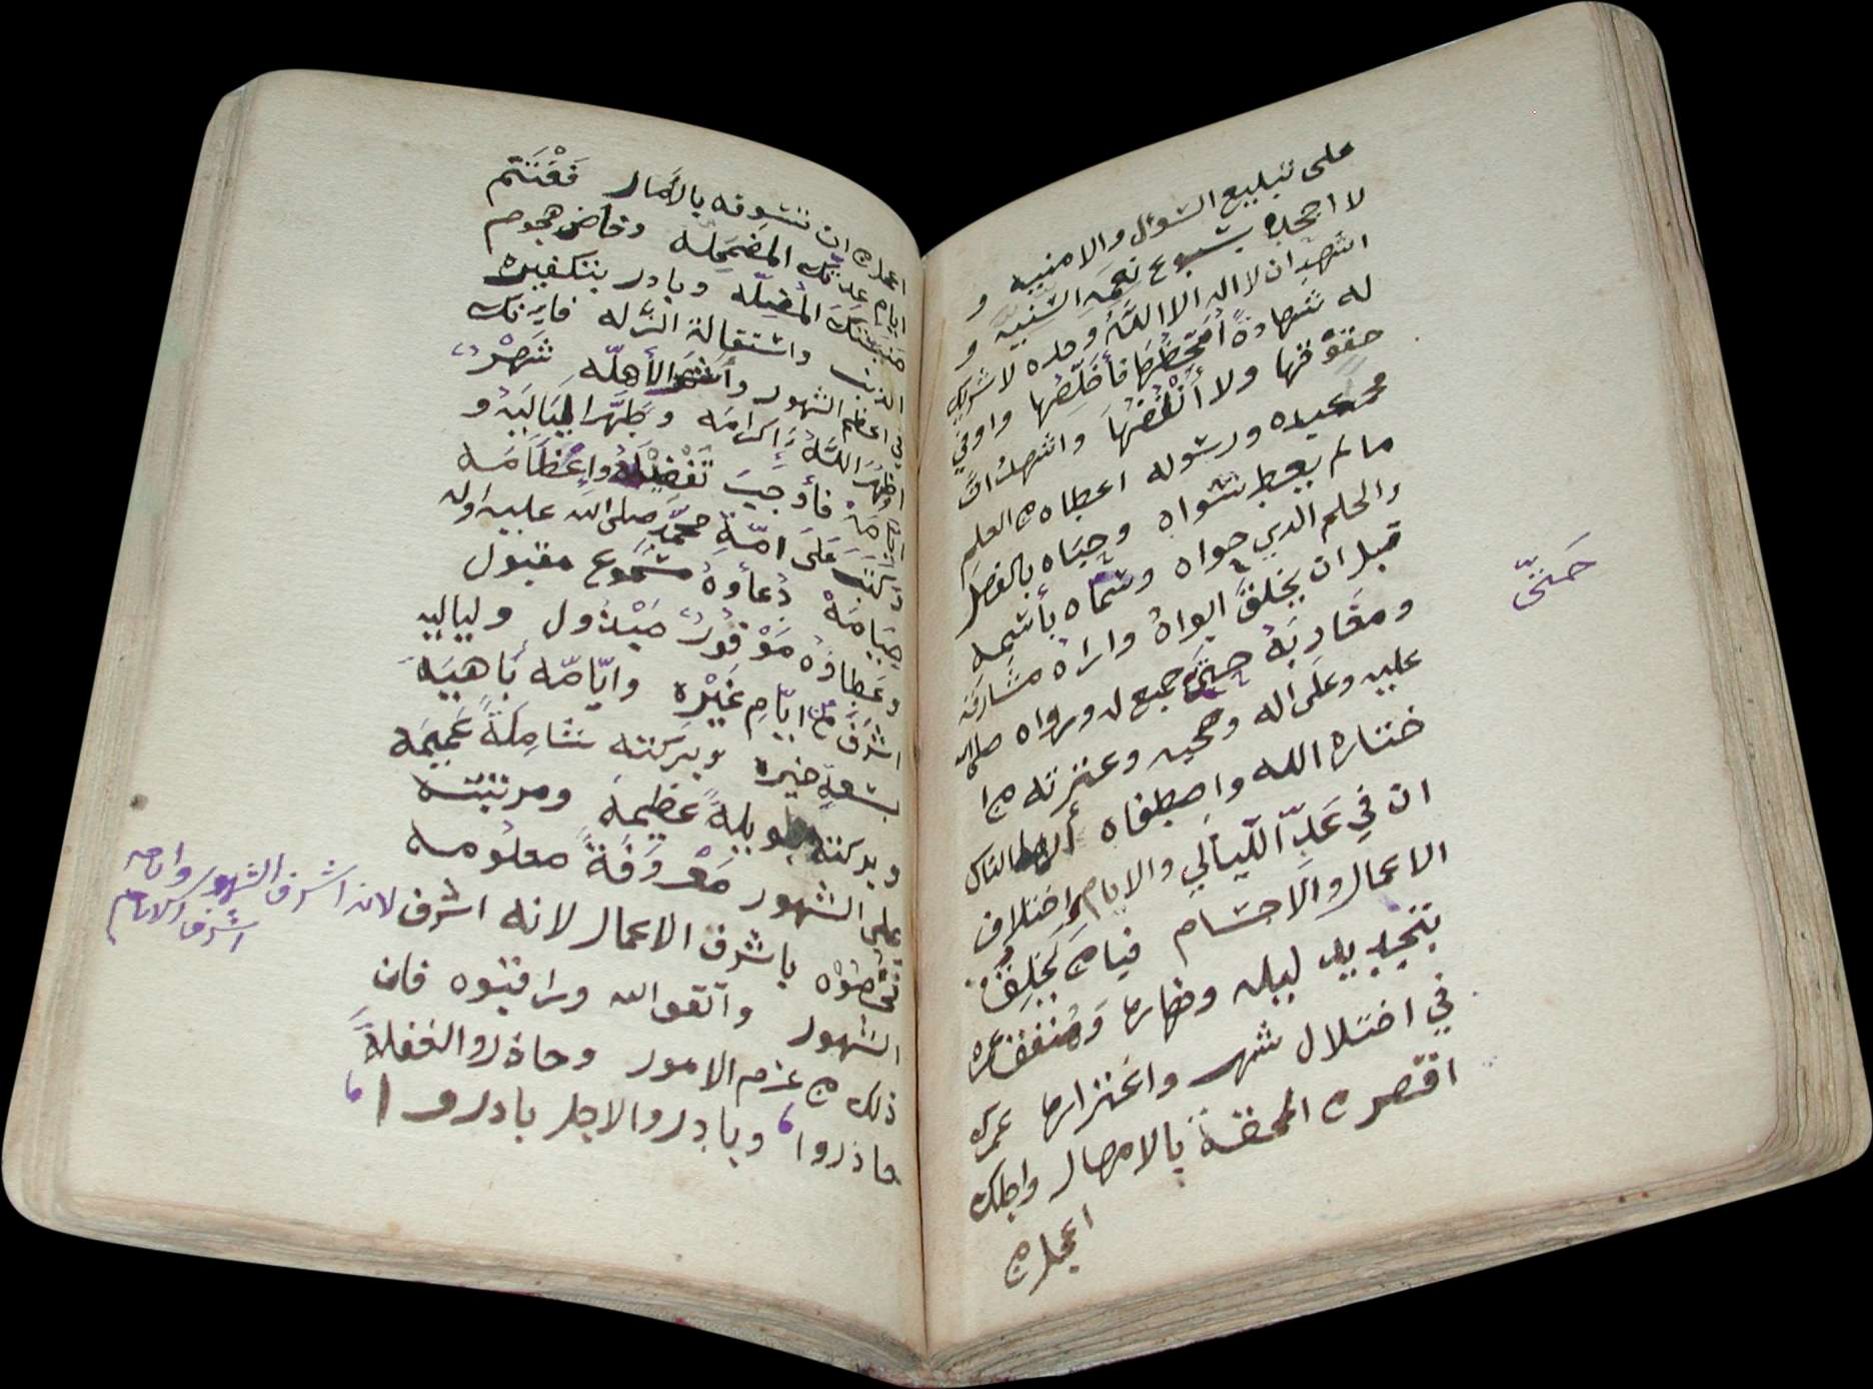 على تبليغ السؤال والامنيه و
لا اجحده سبوع نعمه السنيه و
اشهد ان لا اله الا الله وحده لا شريك
له شهادة امحظها فأخلصها واوفي
حقوقها ولا أنقضها واشهد ان
محمد عبده ورسوله اعطاه من العلم
ما لم يعط سواه وحباه بالفضل
والحلم الذي حواه وسماه بأسمه
قبل ان يخلق ابواه واراه مشارقه
ومغاربه حتى جميع له ورواه صلى الله
عليه وعلى اله وصحبه وعترته من ا
ختاره الله واصطفاه أيها الناس
ان في عد الليالي والايام واختلاف
الاعمال والاجسام فيا من يخلق
بتجديد ليله ونهاره ومنفق عمره
في اختلال شهر واغتراره عمرك
اقتصر من المحقة بالامهال واجلك
اعجل من
حتى
اعجل من ان تسوفه بالأمال فغنتم
ايام عدتك المضمحله وخاض هجوم
منيتك المقبله وبادر بتكفير
الذنب واستقالة الزله فانك
في اعظم الشهور وأشهر الأهله شهر
اظهر الله اكرامه وطهر لياليه و
ايامه فأوجب تفضيله واعظامه
وكتب على امة محمد صلى الله عليه واله
صيامه دعاؤه مسموع مقبول
وعطاؤه موفور مبذول ولياليه
اشرف من ايام غيره وايامه باهيه
بسعة خيره وبركته شامله عميمه
وبركته طويلة عظيمه ومرتبته
على الشهور معروفة معلومه
فخصوه باشرف الاعمال لانه اشرف
الشهور واتقوا الله وراقبوه فان
ذلك من عزم الامور وحاذروا الغفله
حاذروا وبادروا الاجل بادروا
لانه اشرف الشهور وايامه
اشرف الايام